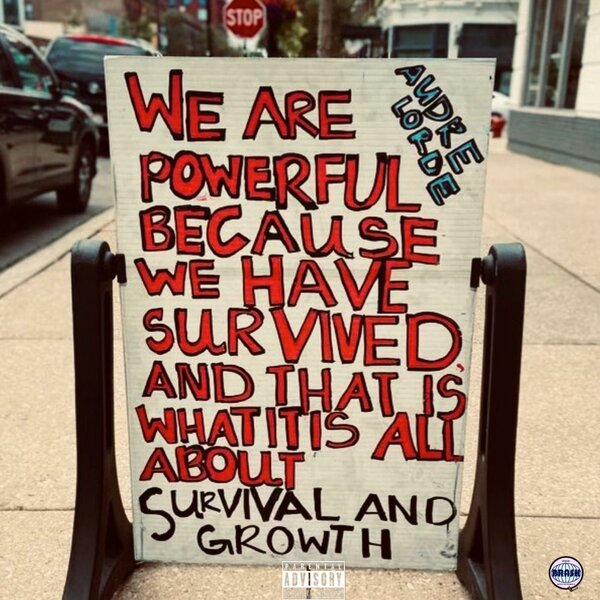 STOP
AUDRE
LORDE
WE ARE
POWERFUL
BECAUSE
WE HAVE
SURVIVED,
AND THAT IS
WHAT IT IS ALL
ABOUT
SURVIVAL AND
GROWTH
PARENTAL
ADVISORY
BRASK